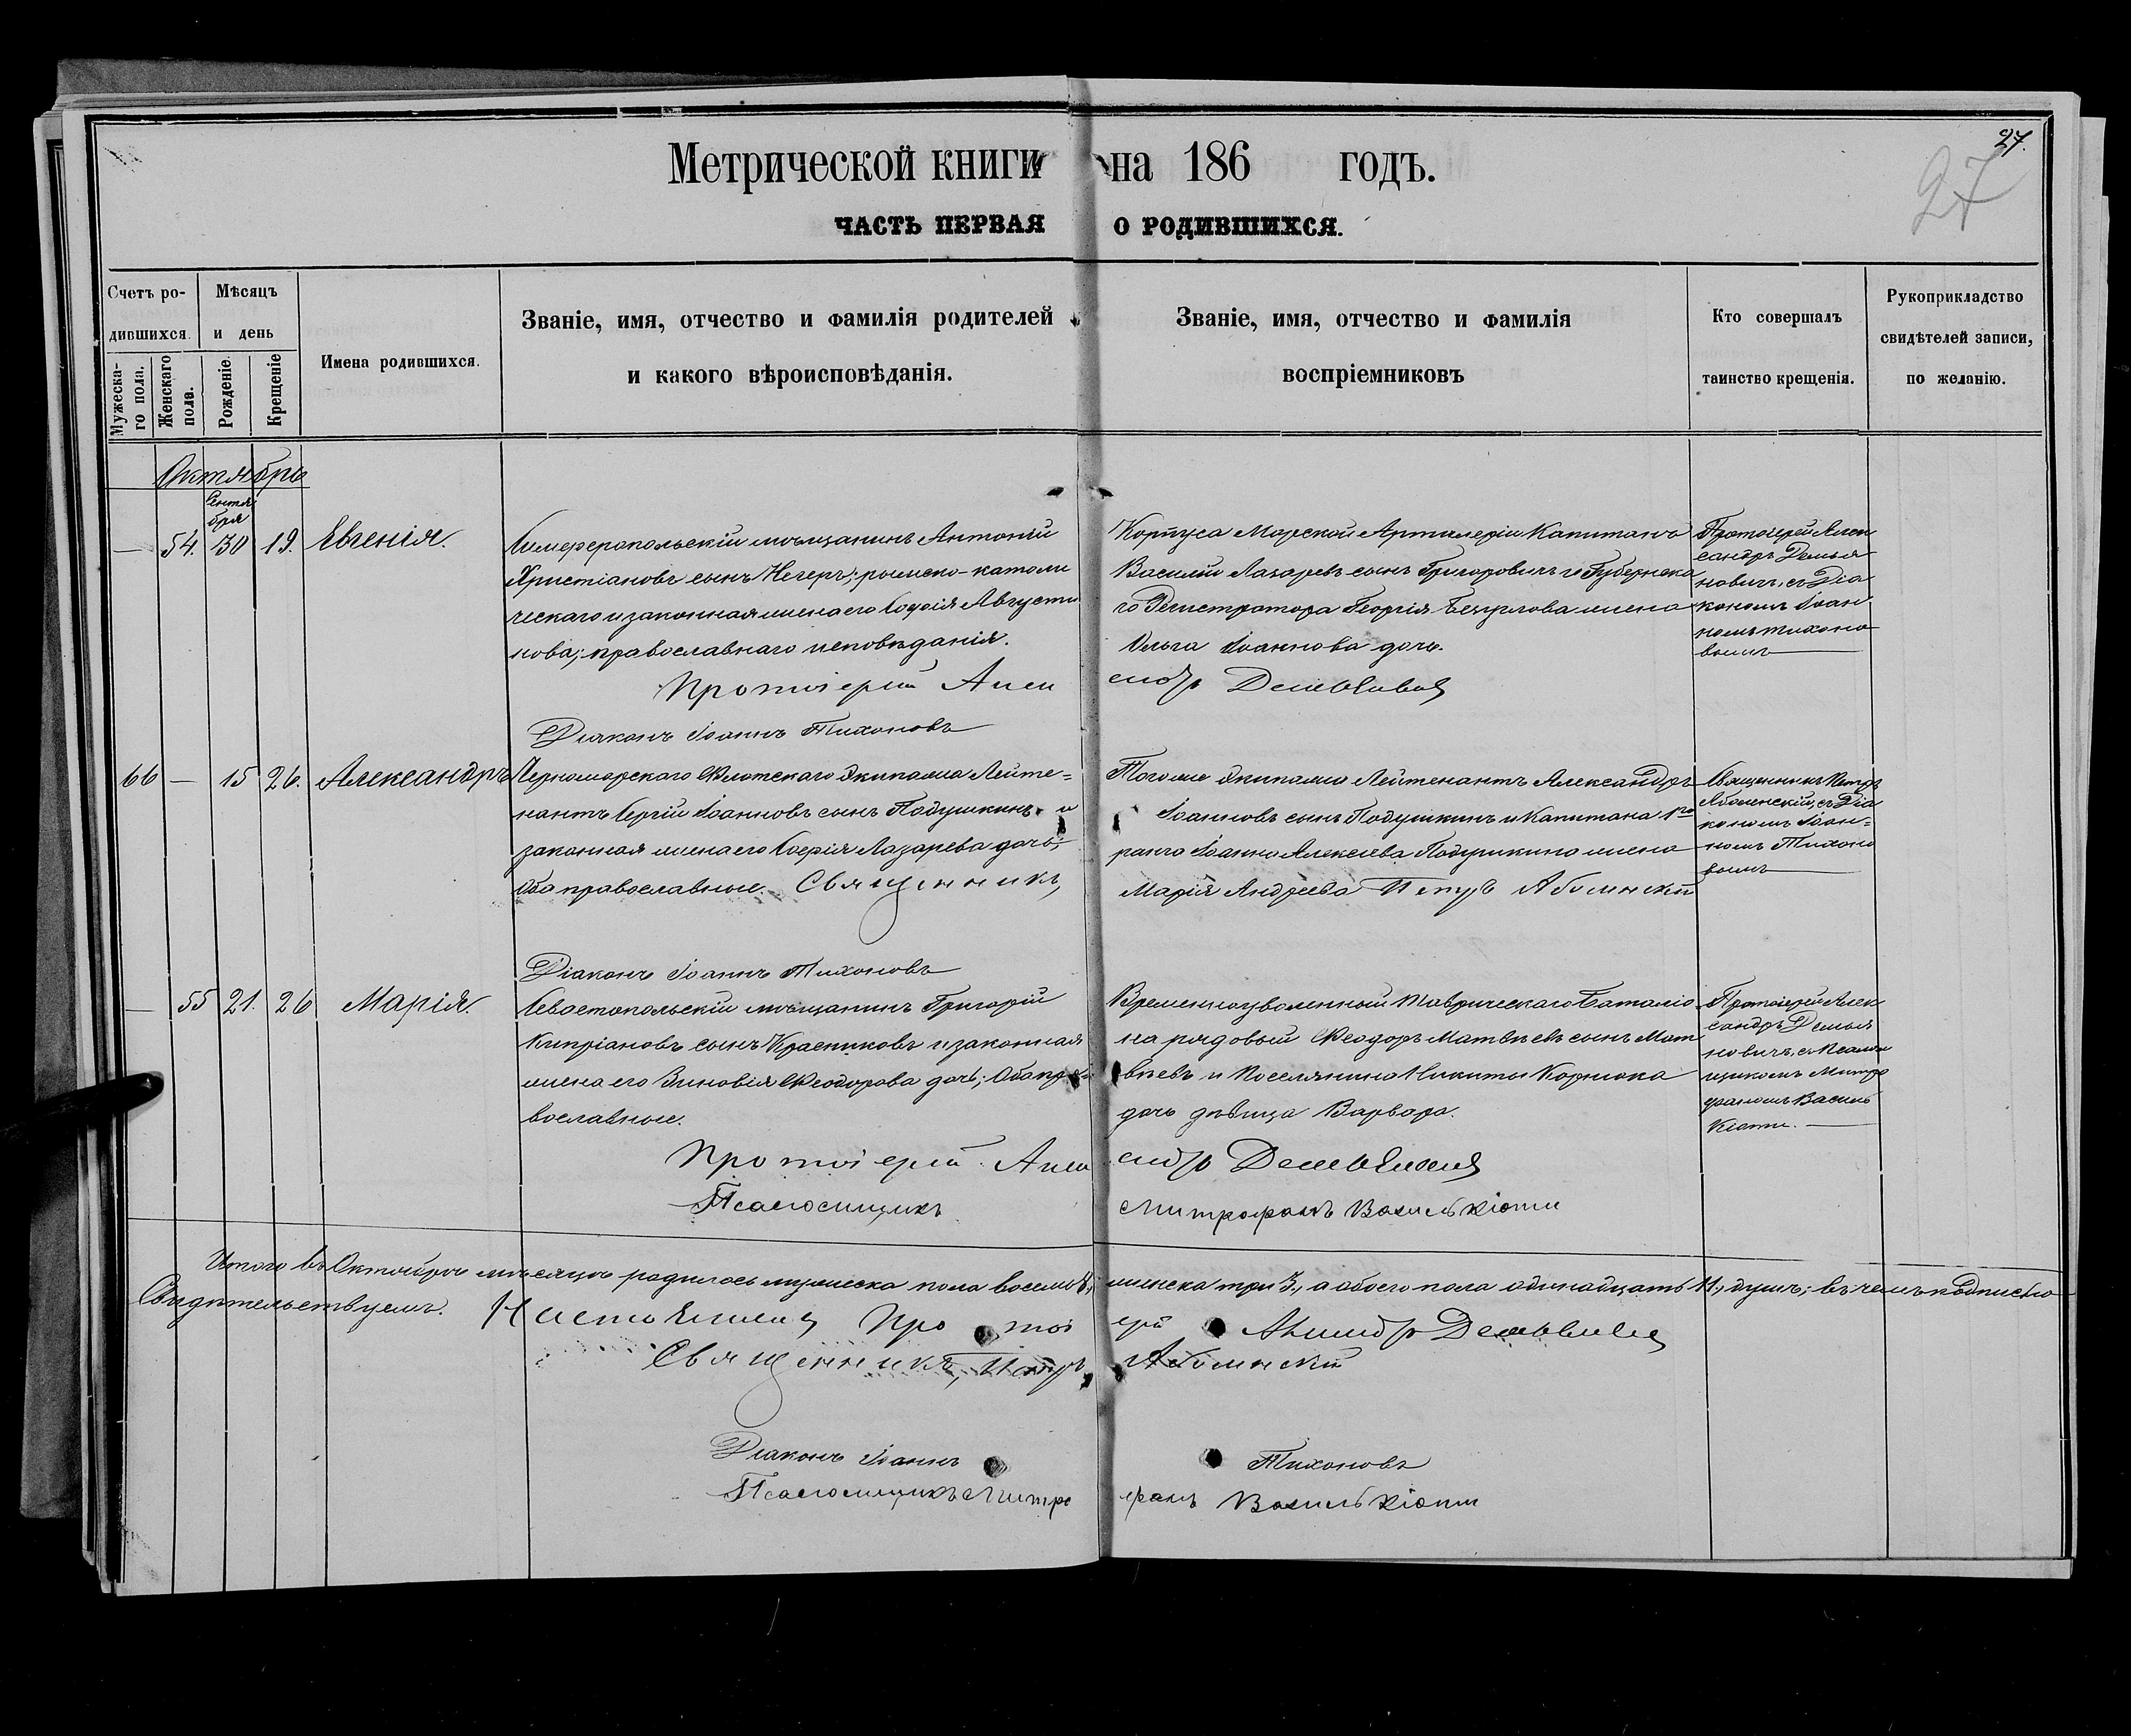 27.
27
Метрической книги на 186 годъ.
ЧАСТЬ ПЕРВАЯ О РОДИВШИХСЯ.
Счетъ ро-
дившихся.
Мужеска-
го пола.
Женскаго
пола.
Мѣсяцъ
и день
Рожденіе.
Крещеніе
Имена родившихся.
Званіе, имя, отчество и фамилія родителей
и какого вѣроисповѣданія.
Званіе, имя, отчество и фамилія
воспріемниковъ
Кто совершалъ
таинство крещенія.
Рукоприкладство
свидѣтелей записи,
по желанію.
Октябрь
Сентя
бря
— 54. 30 19. Евгенія.
Симферопольскій мѣщанинъ Антоній
Христіановъ сынъ Негеръ; римско-католи
ческаго и законная жена его Софія Августи
нова; православнаго исповѣданія.
Корпуса Морской Артилеріи Капитанъ
Василій Лазаревъ сынъ Григоровичъ и Губернска
го Регистратора Георгія жена
Ольга Іоаннова дочь.
Протоіерей Алек
сандръ Демья
новичъ, съ Діа
кономъ Іоан
номъ Тихоно
вымъ
Протоіерей Алек сандръ Демьяновичъ
Діаконъ Іоаннъ Тихоновъ
66 — 15 26. Александръ
Черноморскаго Флотскаго Экипажа Лейте=
нантъ Сергій Іоанновъ сынъ Подушкинъ и
законная жена его Софія Лазарева дочь;
оба православные. Священникъ,
Того же экипажа Лейтенантъ Александръ
Іоанновъ сынъ Подушкинъ и Капитана 1го
ранга Іоанна Алексѣева Подушкина жена
Марія Андреева Петръ
Священникъ Петръ
съ Діа
кономъ Іоан=
номъ Тихоно
вымъ
Діаконъ Іоаннъ Тихоновъ
— 55 21. 26 Марія.
Севастопольскій мѣщанинъ Григорій
Кипріановъ сынъ Красниковъ и законная
жена его Зиновія Ѳеодорова дочь; оба пра=
вославные.
Временноуволенный Таврическаго Баталіо
на рядовый Ѳеодоръ Матвѣевъ сынъ Мат
вѣевъ и Поселянина Никиты Корнюка
дочь дѣвица Варвара.
Протоіерей Алек
сандръ Демья
новичъ, съ Псалом
щикомъ Митро
фаномъ Василь
кіоти.
Протоіерей Алек сандръ Демьяновичъ
Псаломщикъ Митрофанъ Василькіоти
Итого въ Октябрѣ мѣсяцѣ родилось мужеска пола восемь 8, женска три 3, а обоего пола одинадцать 11, душъ; въ чемъ подписью
Свидѣтельствуемъ. Настоятель Протоіерей Александръ Демьяновичъ
Священникъ, Петръ
Діаконъ Іоаннъ Тихоновъ
Псаломщикъ Митрофанъ Василькіоти